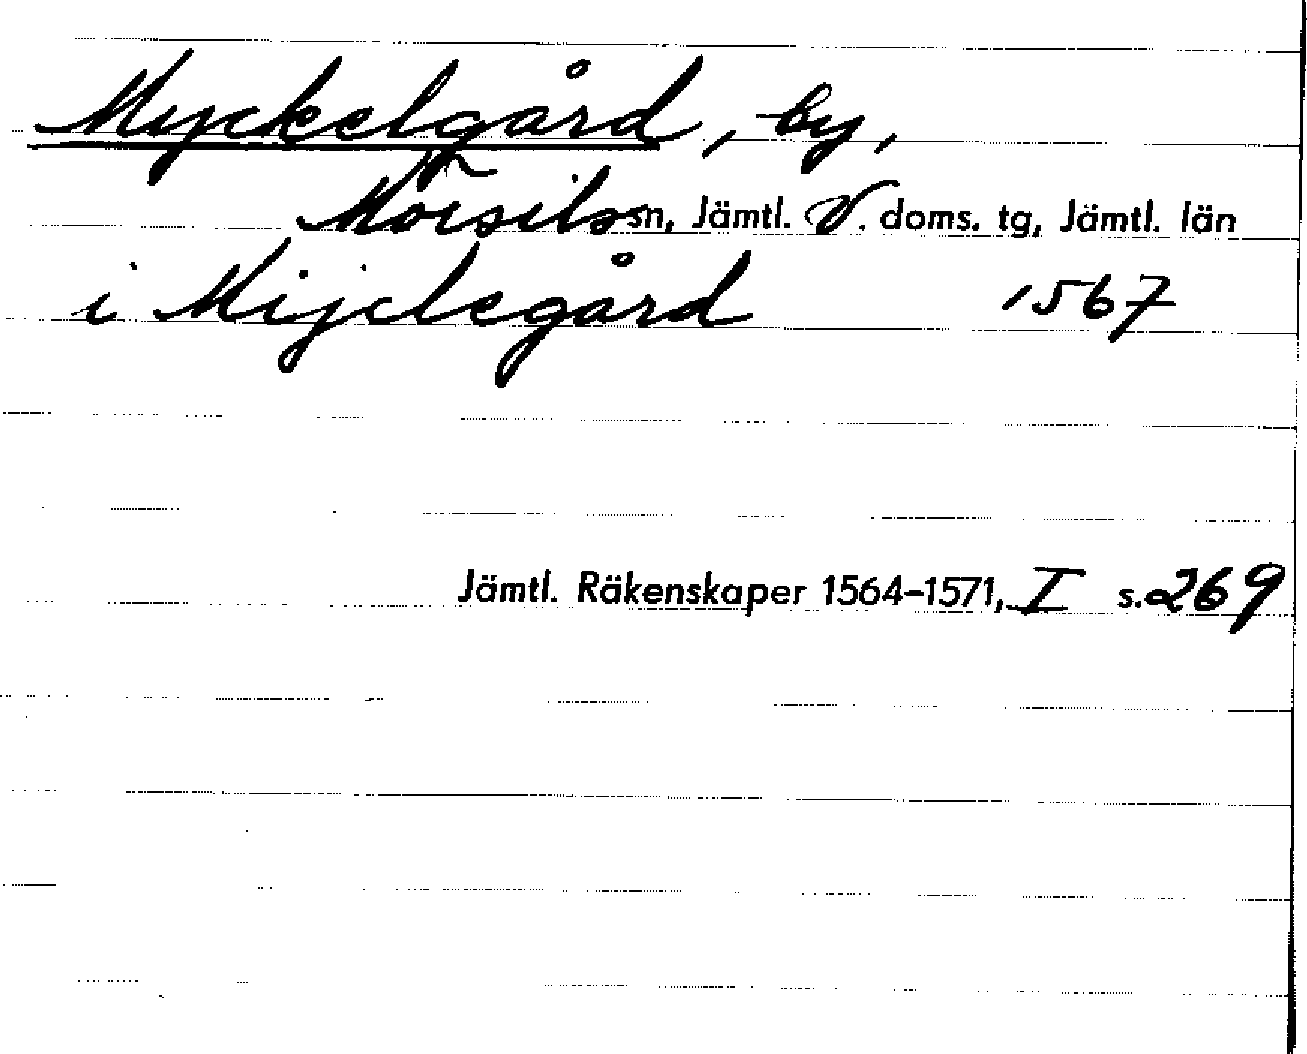 Myckelgård, by,
Mörsils sn, Jämtl. V. doms. tg, Jämtl. län
i Mijclegård 1567
Jämtl. Räkenskaper 1564-1571, I s. 269